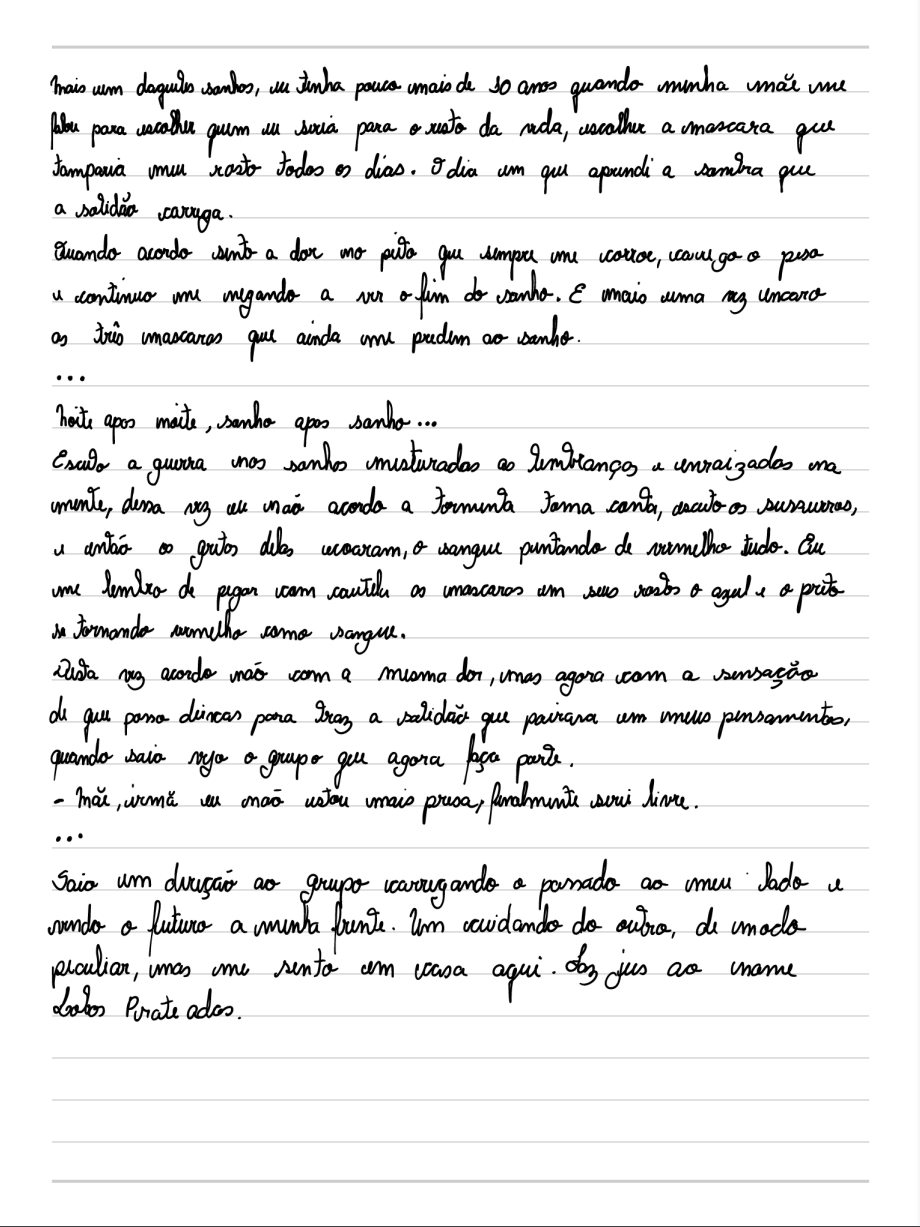 Mais um daqueles sonhos, eu tinha pouco mais de 10 anos quando minha mãe me
falou para escolher quem eu seria para o resto da vida, escolher a mascara que
tamparia meu rosto todos os dias. O dia em que aprendi a sombra que
a solidão carrega.
Quando acordo sinto a dor no peito que sempre me corroe, carrego o peso
e continuo me negando a ver o fim do sonho. E mais uma vez encaro
as três mascaras que ainda me predem ao sonho.
...
Noite apos noite, sonho apos sonho...
Escuto a guerra nos sonhos misturadas as lembranças e enraizadas na
mente, dessa vez eu não acordo a tormenta toma conta, escuto os susurros,
e então os gritos delas ecoaram, o sangue puntando de vermelho tudo. Eu
me lembro de pegar com cautela as mascaras em seus rostos o azul e o preto
se tornando vermelho como sangue.
Desta vez acordo não com a mesma dor, mas agora com a sensação
de que posso deixar para traz a solidão que pairava em meus pensamentos,
quando saio vejo o grupo que agora faço parte.
- Mãe, irmã eu não estou mais presa, finalmente serei livre.
...
Saio em direção ao grupo carregando o passado ao meu lado e
vendo o futuro a minha frente. Um cuidando do outro, de modo
peculiar, mas me sento em casa aqui. Faz jus ao nome
Lobos Pirateados.